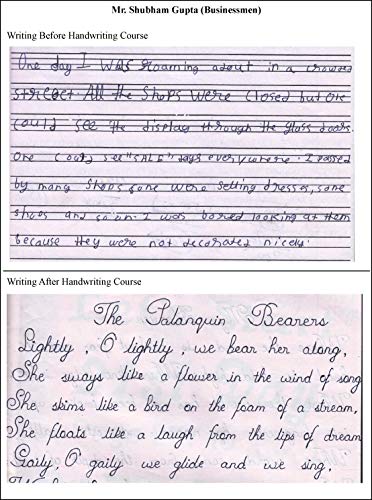 Mr. Shubham Gupta (Businessmen)
Writing Before Handwriting Course
One day I was roaming about in a crowded
street All the shops were closed but one
could see the display through the glass doors.
One could see "SALE" tags everywhere. I passed
by many shops some were selling dresses, some
shoes and so on. I was bored looking at them
because they were not decorated nicely.
Writing After Handwriting Course
The Palanquin Bearers
Lightly, O' lightly, we bear her along,
She sways like a flower in the wind of song
She skims like a bird on the foam of a stream,
She floats like a laugh from the lips of dream
Gaily, O' gaily we glide and we sing,